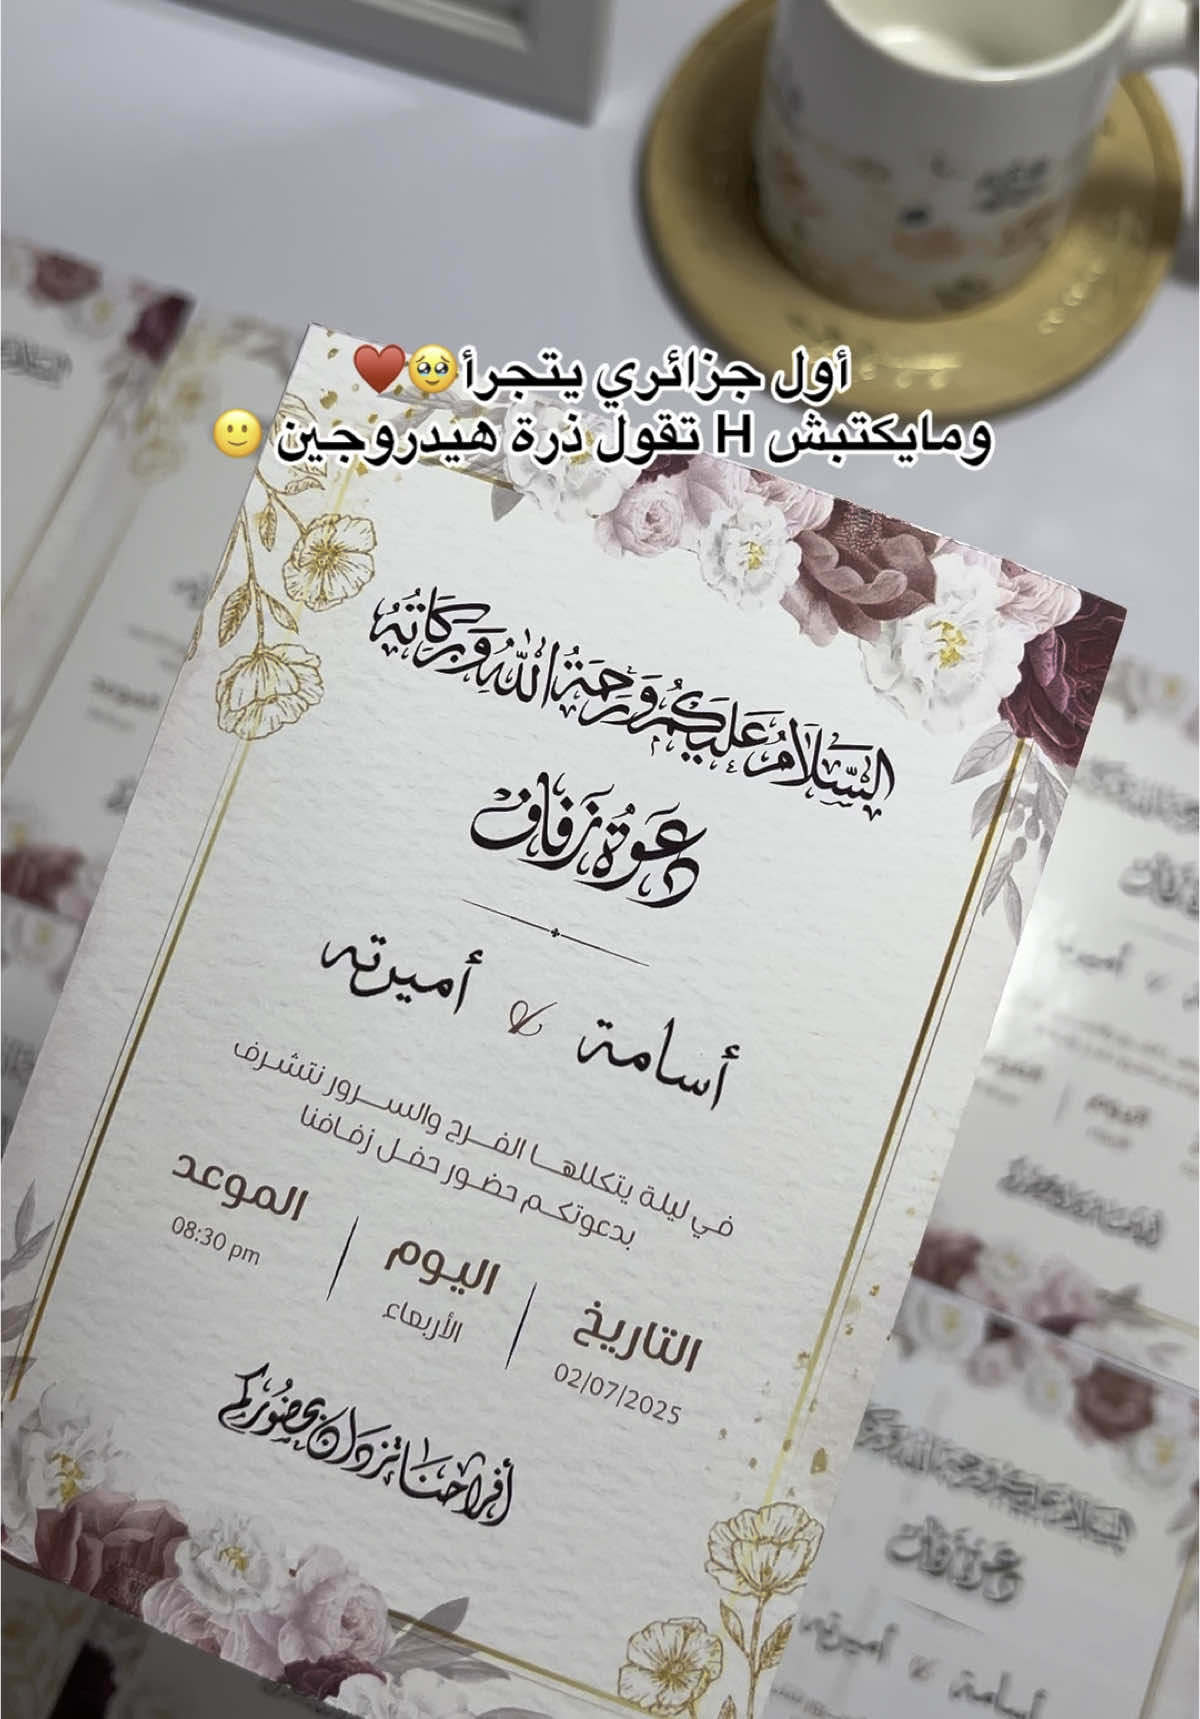 أول جزائري يتجرأ🥹♥️
ومايكتبش H تقول ذرة هيدروجين 🙂
السَّلَامُ عَلَيْكُم وَرَحْمَةُ اللهِ وَبَرَكَاتُهُ
دَعْوَةُ زَفَاف
أسامة & أميرته
في ليلة يتكللها الفرح والسرور نتشرف
بدعوتكم حضور حفل زفافنا
التاريخ | اليوم | الموعد
02/07/2025 الأربعاء 08:30 pm
أفراحنا تزدان بحضوركم